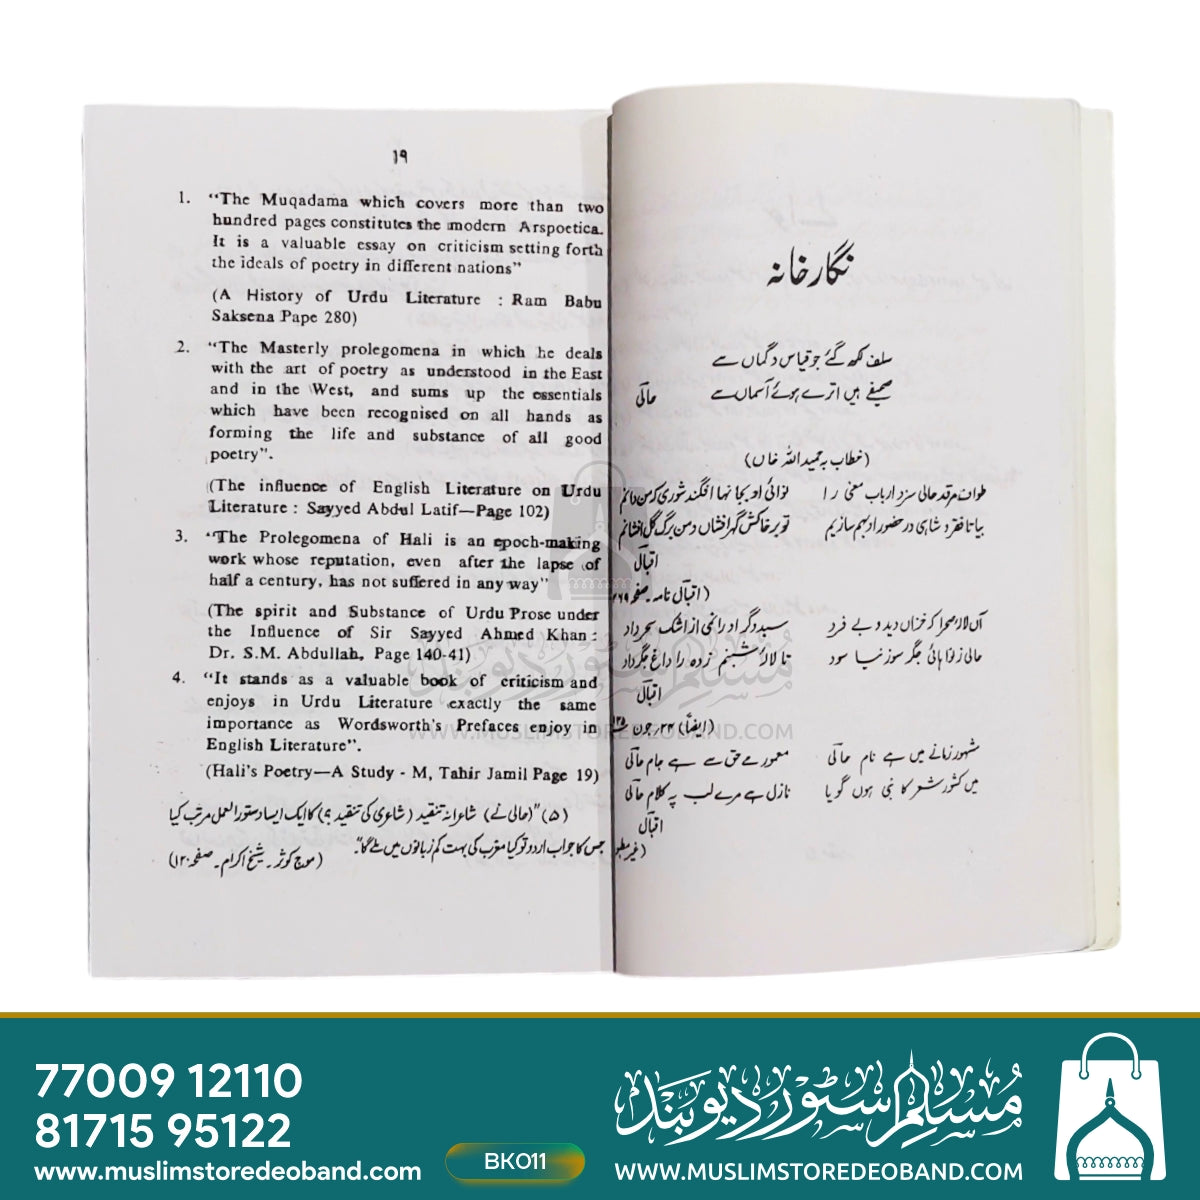 ۱۹
1. “The Muqadama which covers more than two
hundred pages constitutes the modern Arspoetica.
It is a valuable essay on criticism setting forth
the ideals of poetry in different nations”
(A History of Urdu Literature : Ram Babu
Saksena Pape 280)
2. “The Masterly prolegomena in which he deals
with the art of poetry as understood in the East
and in the West, and sums up the essentials
which have been recognised on all hands as
forming the life and substance of all good
poetry”.
(The influence of English Literature on Urdu
Literature : Sayyed Abdul Latif—Page 102)
3. “The Prolegomena of Hali is an epoch-making
work whose reputation, even after the lapse of
half a century, has not suffered in any way”
(The spirit and Substance of Urdu Prose under
the Influence of Sir Sayyed Ahmed Khan :
Dr. S.M. Abdullah, Page 140-41)
4. “It stands as a valuable book of criticism and
enjoys in Urdu Literature exactly the same
importance as Wordsworth’s Prefaces enjoy in
English Literature”.
(Hali’s Poetry—A Study - M, Tahir Jamil Page 19)
(۵) ”(حالی نے) شاعرانہ تنقید (شاعری کی تنقید ؟) کا ایک ایسا دستور العمل مرتب کیا
جس کا جواب اردو تو کیا مغرب کی بہت کم زبانوں میں ملے گا۔“
(موج کوثر۔ شیخ اکرام۔ صفحہ ۱۲۰)
نگار خانہ
سلف لکھ گئے جو قیاس و گماں سے
صحیفے ہیں اترے ہوئے آسماں سے
حالی
(خطاب بہ حمید اللہ خاں)
طواف مرقد حالی سزد ارباب معنی را نوائی او بجا نہا افگند شوری کہ من دانم
بیا تا فقر و شاہی در حضور او بہم سازیم تو بر خاکش گہر افشاں و من برگ گل افشانم
اقبال
(اقبال نامہ۔ صفحہ
آں لالۂ صحرا کہ خزاں دید و بے فرد سید دگر او را نمی از اشک سحر داد
حالی ز نوا ہائی جگر سوز نیا سود تا لالۂ شبنم زدہ را داغ جگر داد
اقبال
(ایضاً) ۲۴ جون
مشہور زمانے میں ہے نام حالی معمور مے حق سے ہے جام حالی
میں کشور شعر کا نبی ہوں گویا نازل ہے مرے لب پہ کلام حالی
اقبال
مسلم سٹور دیوبند
WWW.MUSLIMSTOREDEOBAND.COM
77009 12110
81715 95122
www.muslimstoredeoband.com
BK011
مسلم سٹور دیوبند
WWW.MUSLIMSTOREDEOBAND.COM